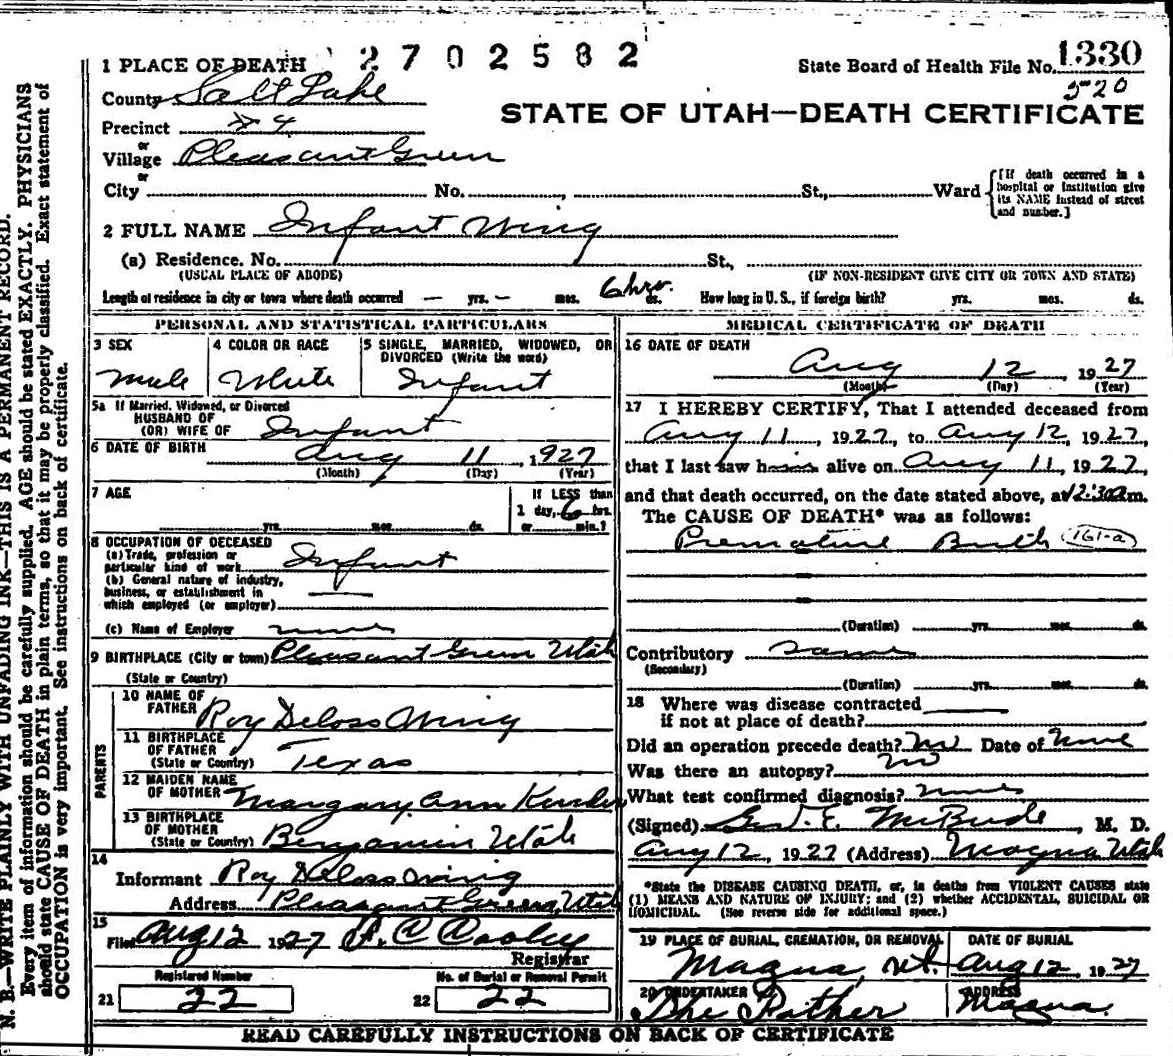 2702582
1330
520
1 PLACE OF DEATH
State Board of Health File No.
County Salt Lake
STATE OF UTAH—DEATH CERTIFICATE
Precinct #4
or
Village Pleasant Green
or
City No. , St., Ward
[If death occurred in a
hospital or institution give
its NAME instead of street
and number.]
2 FULL NAME Infant Wing
(a) Residence. No. St.,
(USUAL PLACE OF ABODE) (IF NON-RESIDENT GIVE CITY OR TOWN AND STATE)
Length of residence in city or town where death occurred — yrs. — mos. 6 hrs. ds. How long in U. S., if foreign birth? yrs. mos. ds.
PERSONAL AND STATISTICAL PARTICULARS
3 SEX
Male
4 COLOR OR RACE
White
5 SINGLE, MARRIED, WIDOWED, OR
DIVORCED (Write the word)
Infant
5a If Married, Widowed, or Divorced
HUSBAND OF
(OR) WIFE OF Infant
6 DATE OF BIRTH Aug 11, 1927
(Month) (Day) (Year)
7 AGE
yrs. mos. ds.
If LESS than
1 day, 6 hrs.
or min.?
8 OCCUPATION OF DECEASED
(a) Trade, profession or
particular kind of work Infant
(b) General nature of industry,
business, or establishment in
which employed (or employer)
(c) Name of Employer none
9 BIRTHPLACE (City or town) Pleasant Green Utah
(State or Country)
PARENTS
10 NAME OF
FATHER Roy Deloss Wing
11 BIRTHPLACE
OF FATHER
(State or Country) Texas
12 MAIDEN NAME
OF MOTHER Margary Ann
13 BIRTHPLACE
OF MOTHER
(State or Country) Benjamin Utah
14
Informant Roy Deloss Wing
Address Pleasant Green, Utah
15
Filed Aug 12 1927 A. C. Cooley
Registrar
Registered Number
21 22
No. of Burial or Removal Permit
22 22
MEDICAL CERTIFICATE OF DEATH
16 DATE OF DEATH
Aug 12 1927
(Month) (Day) (Year)
17 I HEREBY CERTIFY, That I attended deceased from
Aug 11, 1927, to Aug 12, 1927,
that I last saw him alive on Aug 11, 1927,
and that death occurred, on the date stated above, at 12:30 a m.
The CAUSE OF DEATH* was as follows:
Premature Birth 161-a
(Duration) yrs. mos. ds.
Contributory same
(Secondary)
(Duration) yrs. mos. ds.
18 Where was disease contracted
if not at place of death?
Did an operation precede death? no Date of none
Was there an autopsy? no
What test confirmed diagnosis? none
(Signed) McBride, M. D.
Aug 12, 1927 (Address) Magna Utah
*State the DISEASE CAUSING DEATH, or, in deaths from VIOLENT CAUSES state
(1) MEANS AND NATURE OF INJURY; and (2) whether ACCIDENTAL, SUICIDAL OR
HOMICIDAL. (See reverse side for additional space.)
19 PLACE OF BURIAL, CREMATION, OR REMOVAL
Magna, Ut.
DATE OF BURIAL
Aug 12, 1927
20 UNDERTAKER
The Father
ADDRESS
Magna.
READ CAREFULLY INSTRUCTIONS ON BACK OF CERTIFICATE
N. B.—WRITE PLAINLY WITH UNFADING INK—THIS IS A PERMANENT RECORD.
Every item of information should be carefully supplied. AGE should be stated EXACTLY. PHYSICIANS
should state CAUSE OF DEATH in plain terms, so that it may be properly classified. Exact statement of
OCCUPATION is very important. See instructions on back of certificate.